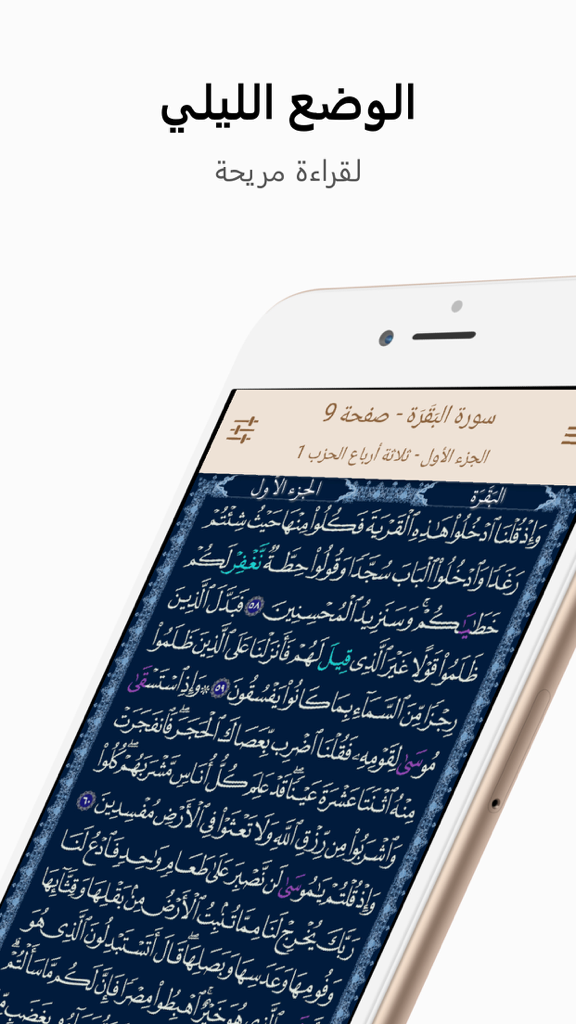 الوضع الليلي
لقراءة مريحة
سورة البَقَرَة - صفحة 9
الجزء الأول - ثلاثة أرباع الحزب 1
البَقَرَة
الجزء الأول
وَإِذْ قُلْنَا ٱدْخُلُوا۟ هَـٰذِهِ ٱلْقَرْيَةَ فَكُلُوا۟ مِنْهَا حَيْثُ شِئْتُمْ
رَغَدًا وَٱدْخُلُوا۟ ٱلْبَابَ سُجَّدًا وَقُولُوا۟ حِطَّةٌ نَّغْفِرْ لَكُمْ
خَطَـٰيَـٰكُمْ ۚ وَسَنَزِيدُ ٱلْمُحْسِنِينَ ٥٨ فَبَدَّلَ ٱلَّذِينَ
ظَلَمُوا۟ قَوْلًا غَيْرَ ٱلَّذِى قِيلَ لَهُمْ فَأَنزَلْنَا عَلَى ٱلَّذِينَ ظَلَمُوا۟
رِجْزًا مِّنَ ٱلسَّمَآءِ بِمَا كَانُوا۟ يَفْسُقُونَ ٥٩ ۞ وَإِذِ ٱسْتَسْقَىٰ
مُوسَىٰ لِقَوْمِهِۦ فَقُلْنَا ٱضْرِب بِّعَصَاكَ ٱلْحَجَرَ ۖ فَٱنفَجَرَتْ
مِنْهُ ٱثْنَتَا عَشْرَةَ عَيْنًا ۖ قَدْ عَلِمَ كُلُّ أُنَاسٍ مَّشْرَبَهُمْ ۖ كُلُوا۟
وَٱشْرَبُوا۟ مِن رِّزْقِ ٱللَّهِ وَلَا تَعْثَوْا۟ فِى ٱلْأَرْضِ مُفْسِدِينَ ٦٠
وَإِذْ قُلْتُمْ يَـٰمُوسَىٰ لَن نَّصْبِرَ عَلَىٰ طَعَامٍ وَٰحِدٍ فَٱدْعُ لَنَا
رَبَّكَ يُخْرِجْ لَنَا مِمَّا تُنۢبِتُ ٱلْأَرْضُ مِنۢ بَقْلِهَا وَقِثَّآئِهَا
وَفُومِهَا وَعَدَسِهَا وَبَصَلِهَا ۖ قَالَ أَتَسْتَبْدِلُونَ ٱلَّذِى هُوَ
بِٱلَّذِى هُوَ خَيْرٌ ۚ ٱهْبِطُوا۟ مِصْرًا فَإِنَّ لَكُم مَّا سَأَلْتُمْ ۗ